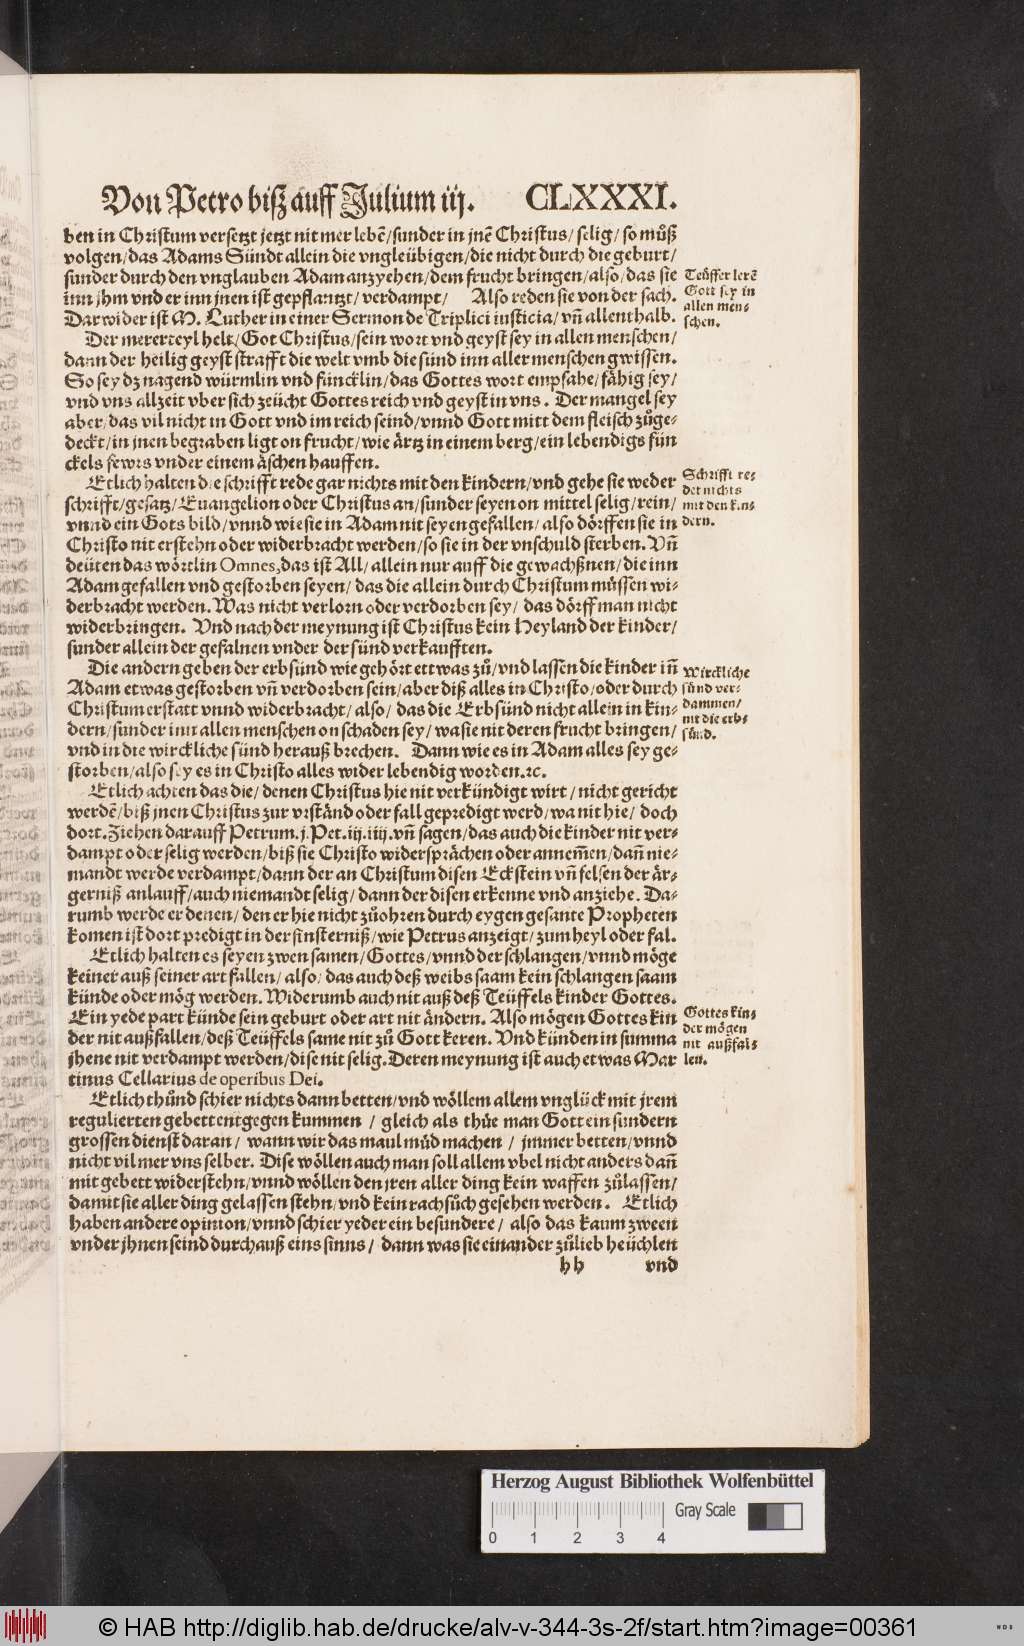 Von Petro biß auff Julium iij. CLXXXI.
ben in Christum versetzt jetzt nit mer lebẽ/sunder in jnẽ Christus/ selig/ so můß
volgen/das Adams Sündt allein die vngleübigen/die nicht durch die geburt/
sunder durch den vnglauben Adam anzyehen/dem frucht bringen/also/das sie
inn jhm vnd er inn jnen ist gepflantzt/ verdampt/ Also reden sie von der sach.
Darwider ist M. Luther in einer Sermon de Triplici iusticia/ vñ allenthalb.
Teüffer lerẽ
Gott sey in
allen men-
schen.
Der mererteyl helt/Got Christus/sein wort vnd geyst sey in allen menschen/
dann der heilig geyst strafft die welt vmb die sünd inn aller menschen gwissen.
So sey dz nagend würmlin vnd füncklin/das Gottes wort empfahe/fähig sey/
vnd vns allzeit vber sich zeücht Gottes reich vnd geyst in vns. Der mangel sey
aber/das vil nicht in Gott vnd im reich seind/vnnd Gott mitt dem fleisch zůge-
deckt/in jnen begraben ligt on frucht/wie ärtz in einem berg/ein lebendigs fün
ckels fewrs vnder einem äschen hauffen.
Etlich halten die schrifft rede gar nichts mit den kindern/vnd gehe sie weder
schrifft/gesatz/Euangelion oder Christus an/sunder seyen on mittel selig/rein/
vnnd ein Gots bild/vnnd wie sie in Adam nit seyen gefallen/also dörffen sie in
Christo nit erstehn oder widerbracht werden/so sie in der vnschuld sterben. Vñ
deüten das wörtlin Omnes,das ist All/allein nur auff die gewachßnen/die inn
Adam gefallen vnd gestorben seyen/ das die allein durch Christum müssen wi-
derbracht werden. Was nicht verlorn oder verdorben sey/ das dörff man nicht
widerbringen. Vnd nach der meynung ist Christus kein Heyland der kinder/
sunder allein der gefalnen vnder der sünd verkaufften.
Schrifft re-
det nichts
mit den kin-
dern.
Die andern geben der erbsünd wie gehört ettwas zů/vnd lassen die kinder iñ
Adam etwas gestorben vñ verdorben sein/aber diß alles in Christo/oder durch
Christum erstatt vnnd widerbracht/also/ das die Erbsünd nicht allein in kin-
dern/sunder inn allen menschen on schaden sey/ wa sie nit deren frucht bringen/
vnd in die wirckliche sünd herauß brechen. Dann wie es in Adam alles sey ge-
storben/also sey es in Christo alles wider lebendig worden.ꝛc.
Wirckliche
sünd ver-
dammen/
nit die erb-
sünd.
Etlich achten das die/ denen Christus hie nit verkündigt wirt/ nicht gericht
werdẽ/biß jnen Christus zur vrständ oder fall gepredigt werd/wa nit hie/ doch
dort. Ziehen darauff Petrum.j.Pet.iij.iiij.vñ sagen/das auch die kinder nit ver-
dampt oder selig werden/biß sie Christo widersprächen oder annem̃en/dañ nie-
mandt werde verdampt/dann der an Christum disen Eckstein vñ felsen der är-
gerniß anlauff/auch niemandt selig/ dann der disen erkenne vnd anziehe. Da-
rumb werde er denen/ den er hie nicht zů ohren durch eygen gesante Propheten
komen ist dort predigt in der finsterniß/wie Petrus anzeigt/zum heyl oder fal.
Etlich halten es seyen zwen samen/Gottes/vnnd der schlangen/vnnd möge
keiner auß seiner art fallen/ also/das auch deß weibs saam kein schlangen saam
künde oder mög werden. Widerumb auch nit auß deß Teüffels kinder Gottes.
Ein yede part künde sein geburt oder art nit ändern. Also mögen Gottes kin
der nit außfallen/deß Teüffels same nit zů Gott keren. Vnd künden in summa
jhene nit verdampt werden/dise nit selig. Deren meynung ist auch etwas Mar
tinus Cellarius de operibus Dei.
Gottes kin-
der mögen
nit außfal-
len.
Etlich thůnd schier nichts dann betten/vnd wöllem allem vnglück mit jrem
regulierten gebett entgegen kummen / gleich als thüe man Gott ein sundern
grossen dienst daran/ wann wir das maul müd machen / jmmer betten/vnnd
nicht vil mer vns selber. Dise wöllen auch man soll allem vbel nicht anders dañ
mit gebett widerstehn/vnnd wöllen den jren aller ding kein waffen zůlassen/
damit sie aller ding gelassen stehn/vnd kein rachsůch gesehen werden. Etlich
haben andere opinion/vnnd schier yeder ein besundere/ also das kaum zween
vnder jhnen seind durchauß eins sinns/ dann was sie einander zůlieb heüchlen
hh vnd
Herzog August Bibliothek Wolfenbüttel
Gray Scale
0 1 2 3 4
© HAB http://diglib.hab.de/drucke/alv-v-344-3s-2f/start.htm?image=00361